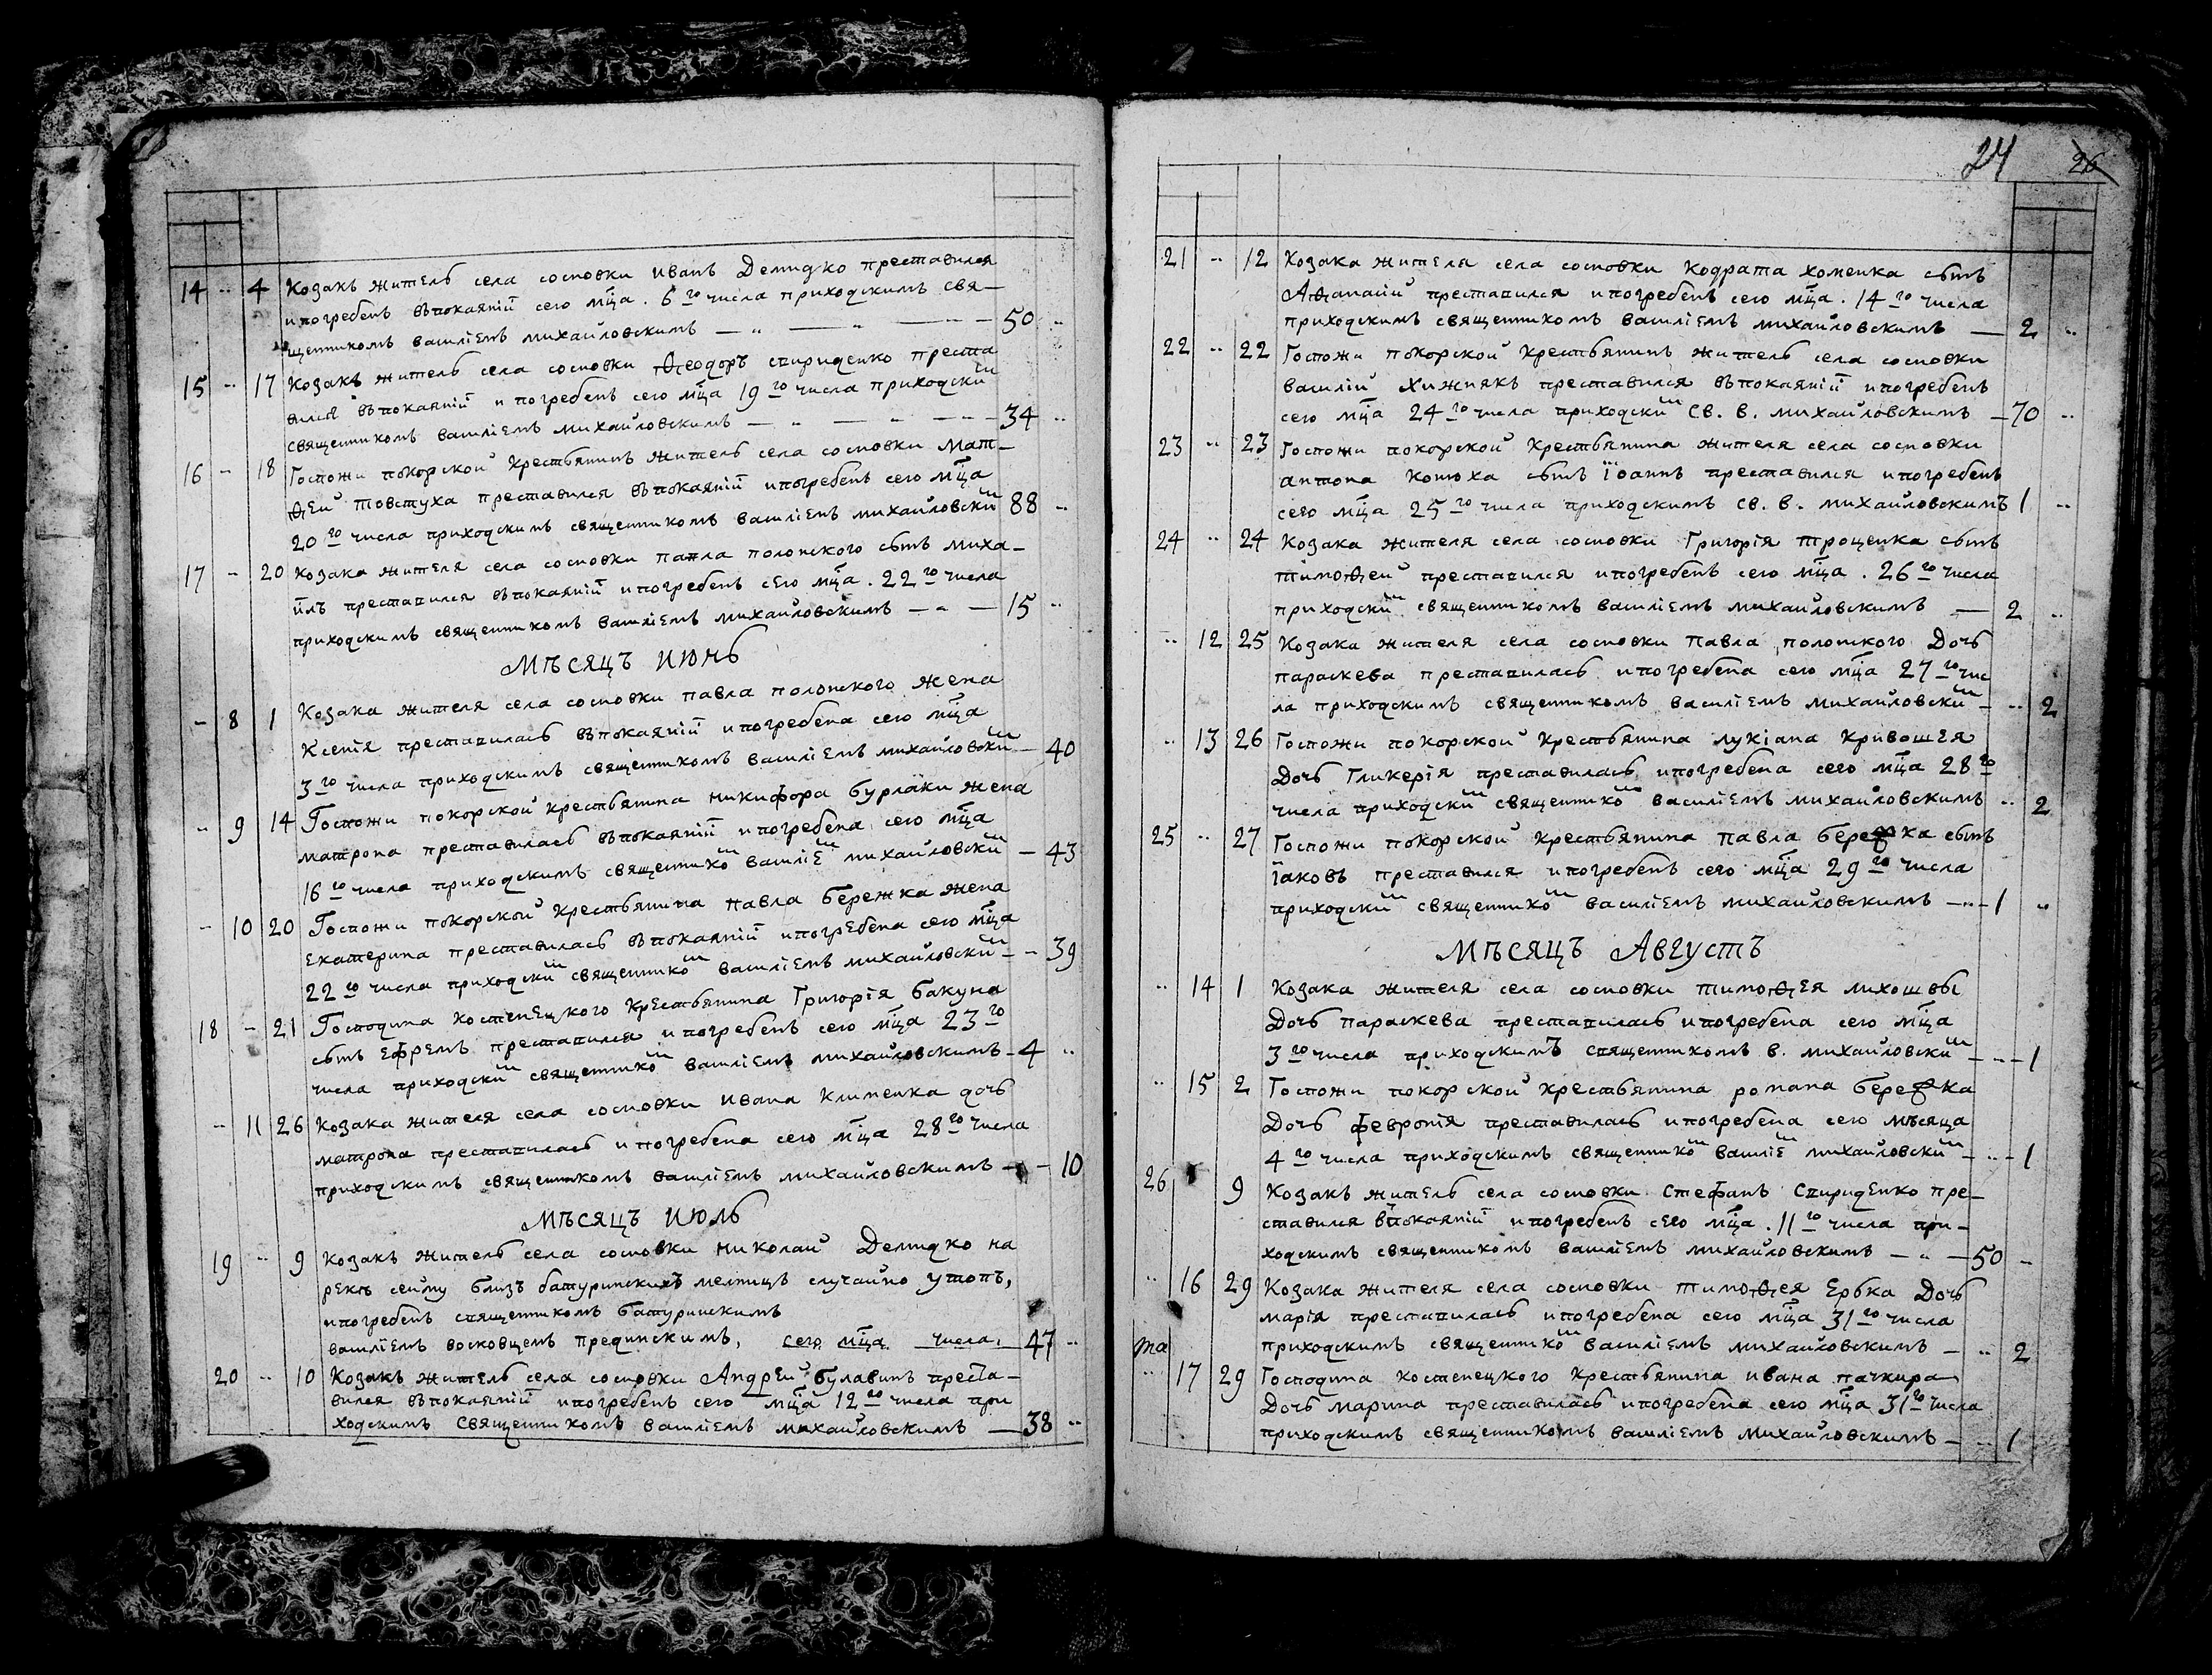 14 .. 4 Козакъ житель села сосновки иванъ Демидко преставился
и погребенъ въ покаянїи сего мца. 6 го числа приходскимъ свя-
щенникомъ василіемъ михайловскимъ — „ — „ — 50 ..
15 .. 17 Козакъ житель села сосновки Ѳеодоръ спириденко преста
вился въ покаянїи и погребенъ сего мца 19 го числа приходски м
священникомъ василіемъ михайловскимъ — „ — „ — 34 ..
16 - 18 Госпожи покорской крестьянинъ житель села сосновки Мат-
ѳей товстуха преставился въ покаянїи и погребенъ сего мца
20 го числа приходскимъ священникомъ василіемъ михайловски м 88 ..
17 - 20 Козака жителя села сосновки павла полонского сынъ миха-
илъ преставился въ покаянїи и погребенъ сего мца. 22 го числа
приходскимъ священникомъ василіемъ михайловскимъ — „ — 15 ..
Мѣсяцъ Июнь
- 8 1 Козака жителя села сосновки павла полонского жена
Ксенія преставилась въ покаянїи и погребена сего мца
3 го числа приходскимъ священникомъ василіемъ михайловски м — 40
.. 9 14 Госпожи покорской крестьянина никифора бурлаки жена
матрона преставилась въ покаянїи и погребена сего мца
16 го числа приходскимъ священнико м василіе м михайловски м — 43
- 10 20 Госпожи покорской крестьянина павла бережка жена
Екатерина преставилась въ покаянїи и погребена сего мца
22 го числа приходски м священнико м василіемъ михайловски м - - 39
18 - 21 Господина костенецкого крестьянина Григорія бакуна
сынъ Ефремъ преставился и погребенъ сего мца 23 го
числа приходски м священнико м василіемъ михайловскимъ - 4 ..
- 11 26 Козака жителя села сосновки ивана клименка дочь
матрона преставилась и погребена сего мца 28 го числа
приходскимъ священникомъ василіемъ михайловскимъ — - 10
Мѣсяцъ Июль
19 .. 9 Козакъ житель села сосновки николай Демидко на
рекѣ сейму близъ батуринскихъ мелницъ случайно утопъ,
и погребенъ священникомъ батуринскимъ
василіемъ восковцемъ прединскимъ, сего мца числа, 47 ..
20 .. 10 Козакъ житель села сосновки Андрей булавинъ преста-
вился въ покаянїи и погребенъ сего мца 12 го числа при
ходскимъ Священникомъ василіемъ михайловскимъ — 38 ..
24 26
21 .. 12 Козака жителя села сосновки кодрата хоменка сынъ
Аѳанасій преставился и погребенъ сего мца. 14 го числа
приходскимъ священникомъ василіемъ михайловскимъ — 2 ..
22 .. 22 Госпожи покорской крестьянинъ житель села сосновки
василій хижнякъ преставился въ покаянїи и погребенъ
сего мца 24 го числа приходски м Св. в. михайловскимъ — 70 ..
23 .. 23 Госпожи покорской крестьянина жителя села сосновки
антона конюха сынъ Іоаннъ преставился и погребенъ
сего мца 25 го числа приходскимъ св. в. михайловскимъ 1 ..
24 .. 24 Козака жителя села сосновки Григорія троценка сынъ
тимоѳей преставился и погребенъ сего мца. 26 го числа
приходски м священникомъ василіемъ михайловскимъ — 2 ..
.. 12 25 Козака жителя села сосновки павла полонского Дочь
параскева преставилась и погребена сего мца 27 го чис
ла приходскимъ священникомъ василіемъ михайловски м - .. 2
.. 13 26 Госпожи покорской крестьянина лукіана кривошея
Дочь Гликерія преставилась и погребена сего мца 28 го
числа приходски м священнико м василіемъ михайловскимъ .. 2
25 .. 27 Госпожи покорской крестьянина павла бережка сынъ
Іаковъ преставился и погребенъ сего мца 29 го числа
приходски м священнико м василіемъ михайловскимъ — .. - 1 ..
Мѣсяцъ Августъ
.. 14 1 Козака жителя села сосновки тимоѳея лихошвы
Дочь параскева преставилась и погребена сего мца
3 го числа приходскимъ священникомъ в. михайловски м - - - 1
.. 15 2 Госпожи покорской крестьянина романа бережка
Дочь февронія преставилась и погребена сего мѣсяца
4 го числа приходскимъ священнико м василіе м михайловски м - .. - 1
26 9 Козакъ житель села сосновки Стефанъ Спириденко пре-
ставился въ покаянїи и погребенъ сего мца. 11 го числа при-
ходскимъ священникомъ василіемъ михайловскимъ — „ — 50 ..
.. 16 29 Козака жителя села сосновки тимоѳея Ербка Дочь
марія преставилась и погребена сего мца 31 го числа
та приходскимъ священнико м василіемъ михайловскимъ — .. 2
.. 17 29 Господина костенецкого крестьянина ивана пачкира
Дочь марина преставилась и погребена сего мца 31 го числа
приходскимъ священникомъ василіемъ михайловскимъ - .. 1